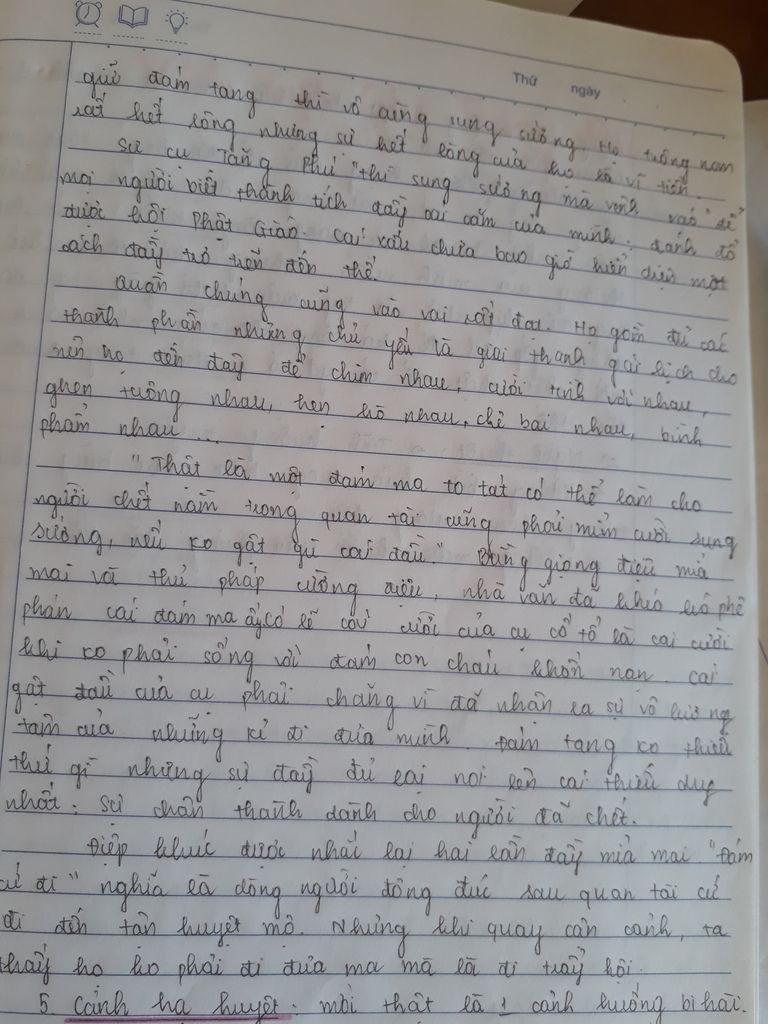 Thứ ngày
giữ đám tang thì vô cùng sung sướng. Họ trông nom
rất hết lòng nhưng sự hết lòng của họ là vì tiền.
Sư cụ Tăng Phú "thì sung sướng mà vênh váo" để
mọi người biết thành tích đầy oai oăm của mình: đánh đổ
được hội Phật Giáo. Cái xấu chưa bao giờ hiển diện một
cách đầy trơ trẽn đến thế.
Quần chúng cũng vào vai rất đạt. Họ gồm đủ các
thành phần nhưng chủ yếu là giai thanh gái lịch cho
nên họ đến đây để chim nhau, cười tình với nhau,
ghen tuông nhau, hẹn hò nhau, chê bai nhau, bình
phẩm nhau ...
"Thật là một đám ma to tát có thể làm cho
người chết nằm trong quan tài cũng phải mỉm cười sung
sướng, nếu ko gật gù cái đầu." Bằng giọng điệu mỉa
mai và thủ pháp cường điệu, nhà văn đã khéo léo phê
phán cái đám ma ấy. Có lẽ cái cười của cụ cố tổ là cái cười
khi ko phải sống với đám con cháu khốn nạn. Cái
gật đầu của cụ phải chăng vì đã nhận ra sự vô lương
tâm của những kẻ đi đưa mình. Đám tang ko thiếu
thứ gì nhưng sự đầy đủ lại nói lên cái thiếu duy
nhất: sự chân thành dành cho người đã chết.
Điệp khúc được nhắc lại hai lần đầy mỉa mai "Đám
cứ đi" nghĩa là dòng người đông đúc sau quan tài cứ
đi đến tận huyệt mộ. Nhưng khi quay cận cảnh, ta
thấy họ ko phải đi đưa ma mà là đi trẩy hội.
5. Cảnh hạ huyệt: mới thật là 1 cảnh huống bi hài.